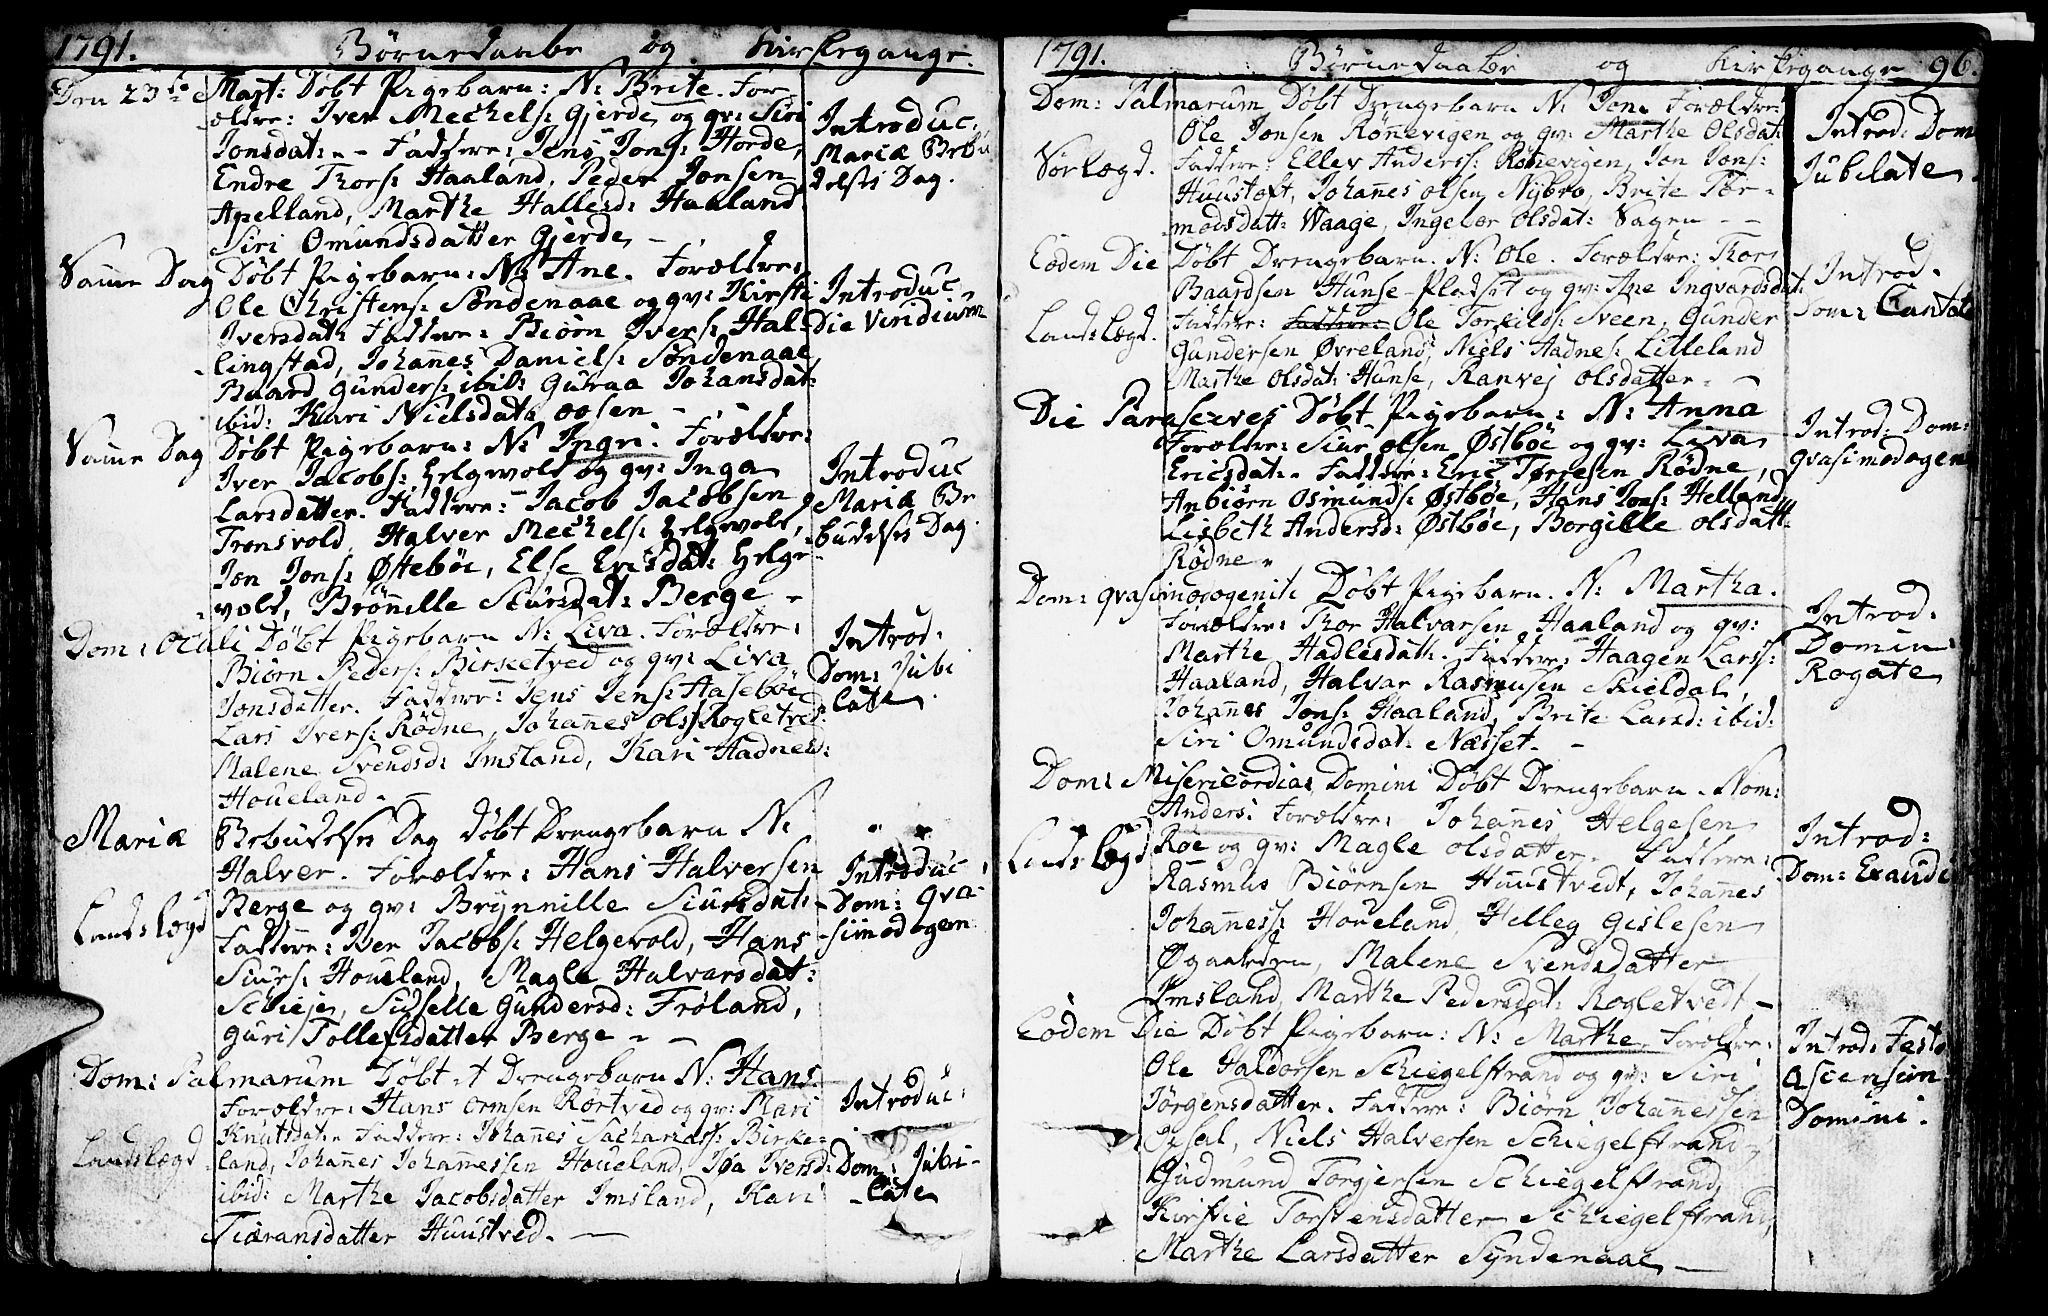 1791. Børnedaabe og Kirkegange.
Den 23de Mart: Døbt Pigebarn: N: Brite. For-
ældre: Iver Mechels: Gjerde og qv: Siri
Jonsdat: - Faddere: Jens Jons: Horde,
Endre Thors: Haaland, Peder Jonsen
Apelland, Marthe Hallesd: Haaland
Siri Omundsdatter Gjerde -
Introduc.
Mariæ Bebu
delses Dag.
Samme Dag Døbt Pigebarn: N: Ane. Forældre:
Ole Christens: Søndenaae og qv: Kirsti
Iversdat: Faddere: Biørn Ivers: Hal-
lingstad, Johannes Daniels: Søndenaae,
Baard Gunders: ibid: Guraa Johansdat:
ibid: Kari Nielsdat: Opsen -
Introduc
Die Viridium
Samme Dag Døbt Pigebarn: N: Ingri. Forældre:
Iver Jacobs: Helgevold og qv: Inga
Larsdatter. Faddere: Jacob Jacobsen
Tronsvold, Halver Mechels: Helgevold,
Jon Jons: Østebøe, Else Ericsdat: Helge-
vold, Brønnille Siursdat: Berge -
Introduc
Mariæ Be
budelses Dag.
Dom: Oculi Døbt Pigebarn N: Liva. Forældre:
Biørn Peders: Birketved og qv: Liva
Jonsdatter. Faddere: Jens Jens: Aasebøe
Lars Ivers: Rødne, Johannes Ols: Rogletved
Malene Svendsd: Imsland, Kari Aadnes:
Houeland -
Introd:
Dom: Jubi
late
Mariæ Bebudelses Dag døbt Drengebarn N:
Halver. Forældre: Hans Halversen
Berge og qv: Brynnille Siursdat: -
Landslægd Faddere: Iver Jacobs: Helgevold, Hans
Siurs: Houeland, Magle Halvarsdat:
Schieje, Sidselle Gundersd: Frøland,
Guri Tollefsdatter Berge -
Introduc
Dom: Qva
simodogen
Dom: Palmarum Døbt et Drengebarn N: Hans
Forældre: Hans Ormsen Rørtved og qv: Mari
Knutsdat: Faddere: Johannes Sachariass: Birke-
Landslægd land, Johannes Johannessen Houeland, Isa Iversd:
ibid: Marthe Jacobsdatter Imsland, Kari
Tiæransdatter Huustved. -
Introduc:
Dom: Jubi-
late
1791. Børnedaabe og Kirkegange 96.
Dom: Palmarum Døbt Drengebarn N: Jon. Forældre:
Ole Jonsen Rønevigen og qv: Marthe Olsdat:
Sørlægd. Faddere: Ellev Anderss: Rønevigen, Jon Jons:
Huustoft, Johannes Olsen Nybro, Brite Tor-
modsdatt: Waage, Ingebor Olsdat: Vagen - -
Introd: Dom
Jubelate
Eodem Die Døbt Drengebarn. N: Ole. Forældre: Thore
Baardsen Hunse-Pladset og qv: Ane Ingvardsdat:
Landslægd. Faddere: Faddere: Ole Torkilds: Sveen, Gunder
Gundersen Øvreland, Niels Aadnes: Lilleland
Marthe Olsdat: Hunse, Ranvej Olsdatter -
Introd.
Dom: Cantate
Die Parasceves Døbt Pigebarn: N: Anna
Forældre: Siur Olsen Østbøe og qv: Liva
Ericsdat: Faddere: Eric Tørresen Rødne,
Anbiørn Osmunds: Østbøe, Hans Jons: Helland,
Lisbeth Andersd: Østbøe, Borgille Olsdatt:
Rødne -
Introd: Dom:
Qvasimodogen
Dom: Qvasimodogeniti Døbt Pigebarn. N: Martha.
Forældre: Thor Halvarsen Haaland og qv:
Marthe Hadlesdat: Faddere: Haagen Larss:
Haaland, Halvar Rasmusen Skieldal,
Johannes Jons: Haaland, Brite Larsd: ibid:
Siri Omundsdat: Næsset. -
Introd:
Domin:
Rogate
Dom: Misericordias Domini Døbt Drengebarn. Nom:
Anders: Forældre: Johannes Helgesen
Landslægd Røe og qv: Magle Olsdatter. Faddere:
Rasmus Biørnsen Huustvedt, Johannes
Johanness: Houeland, Helleg Gislesen
Øgaarden, Malene Svendsdatter
Imsland, Marthe Pedersdat: Rogletvedt -
Introd:
Dom: Exaudi
Eodem Die Døbt Pigebarn: N: Marthe. Forældre:
Ole Haldorsen Schiegelstrand og qv: Siri
Jørgensdatter. Faddere: Biørn Johannessen
Opsal, Niels Halversen Schiegelstrand,
Gudmund Torgjersen Schiegelstrand,
Kirstie Torstensdatter Schiegelstrand,
Marthe Larsdatter Syndenaae -
Introd: Festo
Ascension:
Domini.